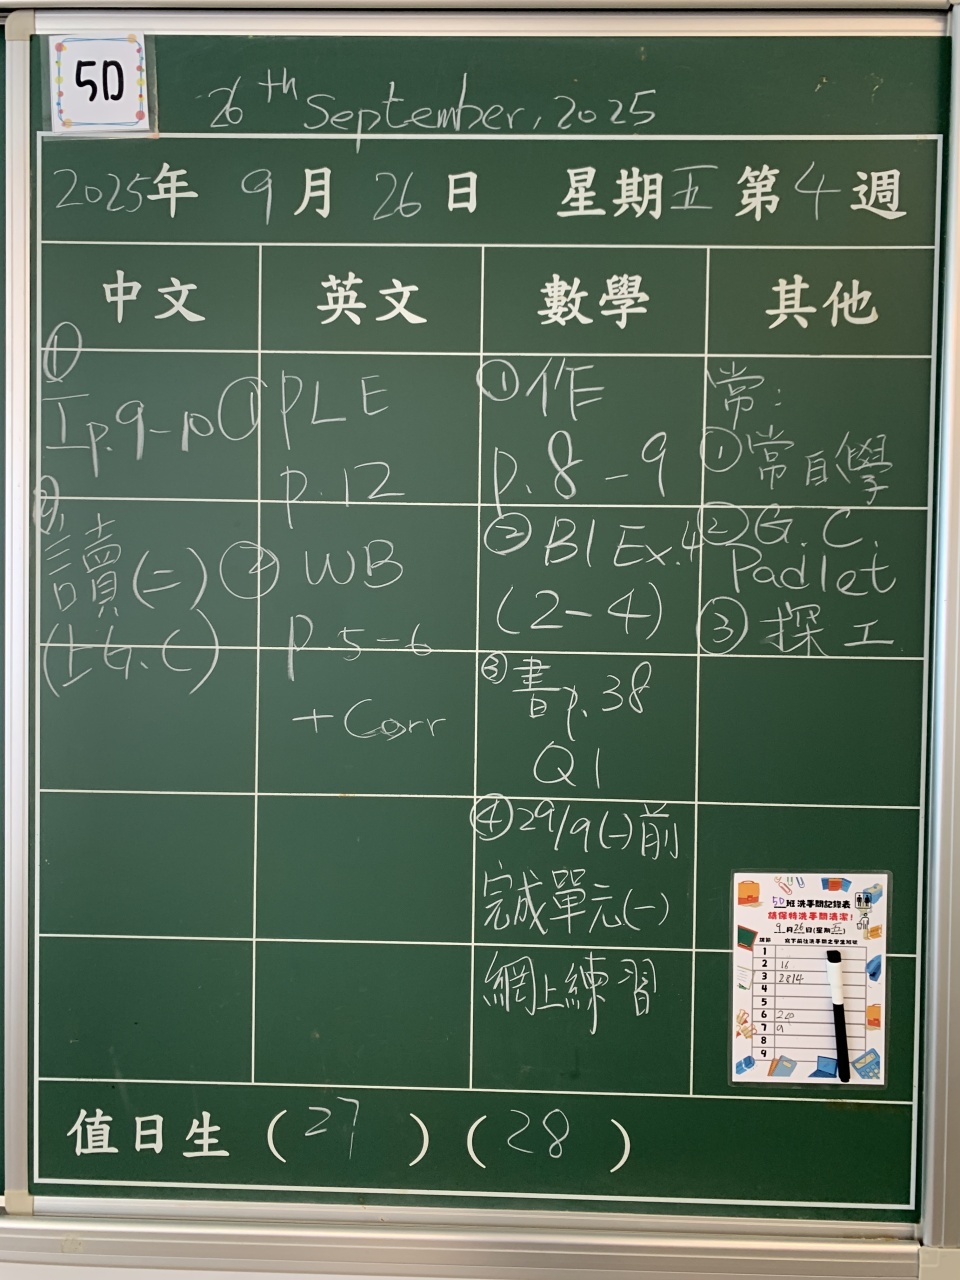 5D
26th September, 2025
2025年 9月 26日 星期五 第4週
中文
①
工p.9-10
②
讀(二)
(上G.C)
英文
① PLE
p.12
② WB
p.5-6
+Corr
數學
①作
p.8-9
② B1 Ex.4
(2-4)
③書p.38
Q1
④29/9(一)前
完成單元(一)
網上練習
其他
常:
①常自學
②G.C.
Padlet
③探工
5D班洗手間記錄表
請保持洗手間清潔!
9月26日(星期五)
課節 寫下前往洗手間之學生班號
1
2 16
3 2814
4
5
6
7 9
8
9
值日生 (27) (28)